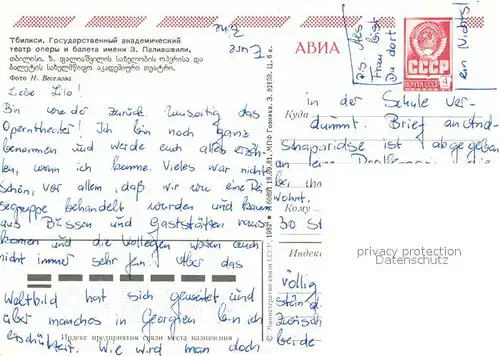 Тбилиси, Государственный академический
театр оперы и балета имени З. Палиашвили,
თბილისი. ზ. ფალიაშვილის სახელობის ოპერისა და
ბალეტის სახელმწიფო აკადემიური თეატრი.
Фото Н. Веселова
Liebe Lilo!
Bin wieder zurück.
Operntheater! Ich bin noch ganz
benommen und werde euch alles erzäh-
len, wenn ich komme. Vieles war nicht
schön, vor allem, daß wir wie eine Rei
segruppe behandelt wurden und kaum
aus Bussen und Gaststätten raus
kamen und die Kollegen waren auch
nicht immer sehr fein. Aber das
Weltbild hat sich geweitet und
über manches in Georgien bin ich
erschüttert. Wie wird man doch
Eure
АВИА
P.S. Als
Frau bist
Du dort
ein Nichts!
СССР
ПОЧТА
4
Куда
in der Schule ver-
dummt. Brief an And
Shaparidse ist abgegeben
an eine
bei ihr
wohnt.
Кому
30 St
Индекс
völlig
ständ
zwisch
beide
privacy protection
Datenschutz
© Министерство связи СССР, 1982
З. 82159, ц. 6 к.
18.09.81. МПФ Гознака.
Индекс предприятия связи места назначения